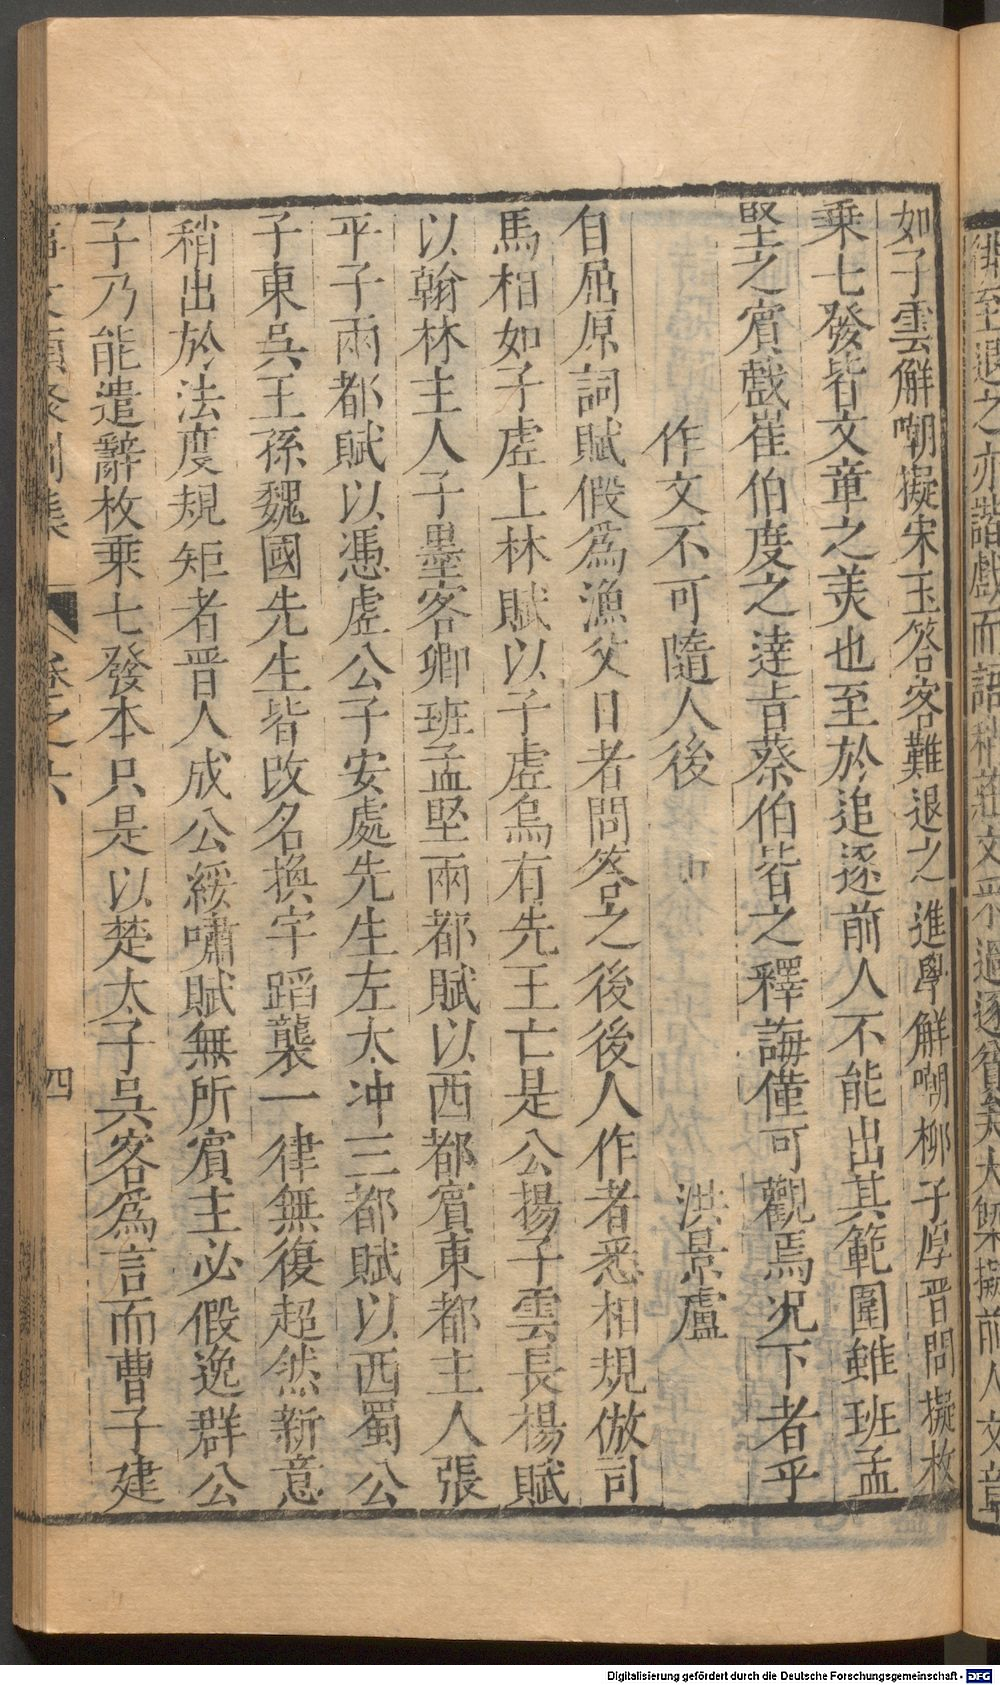 如子雲解嘲擬宋玉答客難退之進學解嘲柳子厚晋問擬枚
乗七發皆文章之美也至於追逐前人不能出其範圍雖班孟
堅之賔戲崔伯度之達㫖蔡伯皆之釋誨僅可觀焉况下者乎
作文不可隨人後 洪景盧
自屈原詞賦假爲漁父日者問答之後後人作者悉相規倣司
馬相如子虗上林賦以子虗烏有先王亡是公揚子雲長楊賦
以翰林主人子墨客卿班孟堅兩都賦以西都賔東都主人張
平子兩都賦以憑虗公子安處先生左太冲三都賦以西蜀公
子東吳王孫魏國先生皆改名換字蹈襲一律無復超然新意
稍出於法度規矩者晋人成公綏嘯賦無所賔主必假逸群公
子乃能遣辭枚乗七發本只是以楚太子吳客爲言而曹子建
卷之六 四
Digitalisierung gefördert durch die Deutsche Forschungsgemeinschaft - DFG